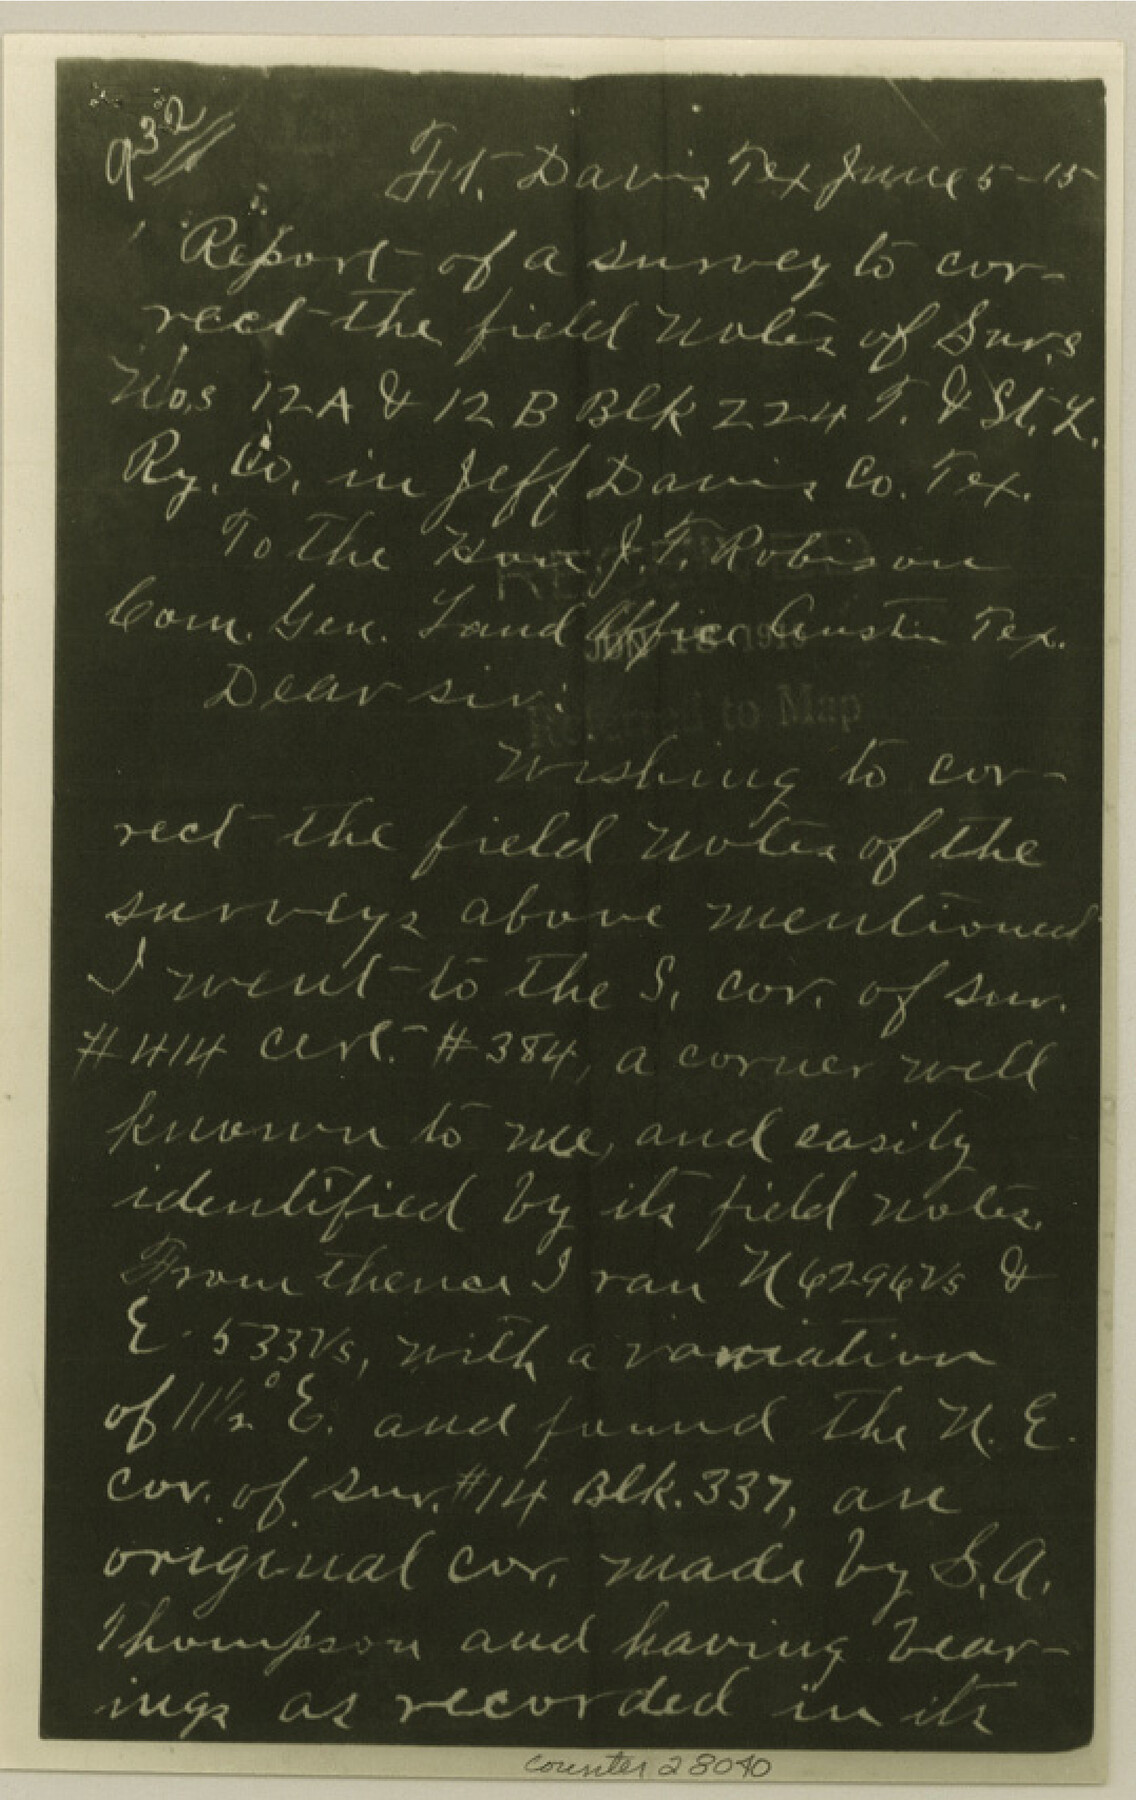 932/
Ft. Davis Tex June 5-15
Report of a survey to cor-
rect the field notes of Surs
Nos 12A & 12B Blk 224 T. & St. L.
Ry. Co. in Jeff Davis Co. Tex.
To the Hon J. T. Robison
RECEIVED
Com. Gen. Land Office Austin Tex.
JUN 191
Dear sir:
Referred to Map
Wishing to cor-
rect the field notes of the
surveys above mentioned
I went to the S. cor. of sur.
#414 cert. #384, a corner well
known to me, and easily
identified by its field notes.
From thence I ran N 6296 Vs &
E 533 Vs, with a variation
of 11½° E. and found the N. E.
cor. of sur. #14 Blk. 337, an
original cor. made by S. A.
Thompson and having bear-
ings as recorded in its
counter 28040